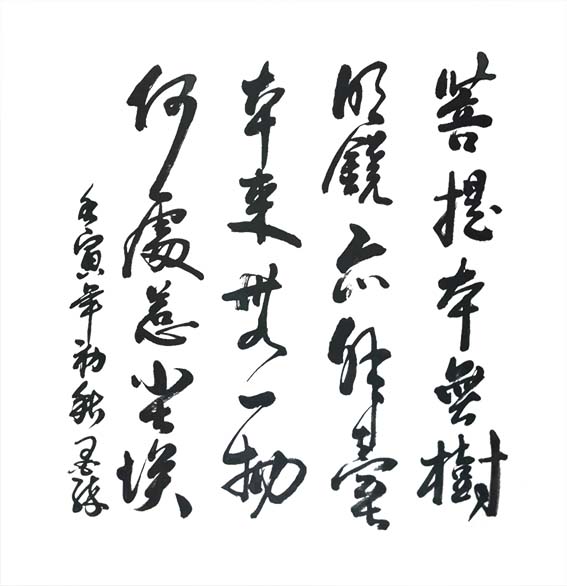 菩提本無樹
明鏡亦非臺
本來無一物
何處惹尘埃
壬寅年初秋